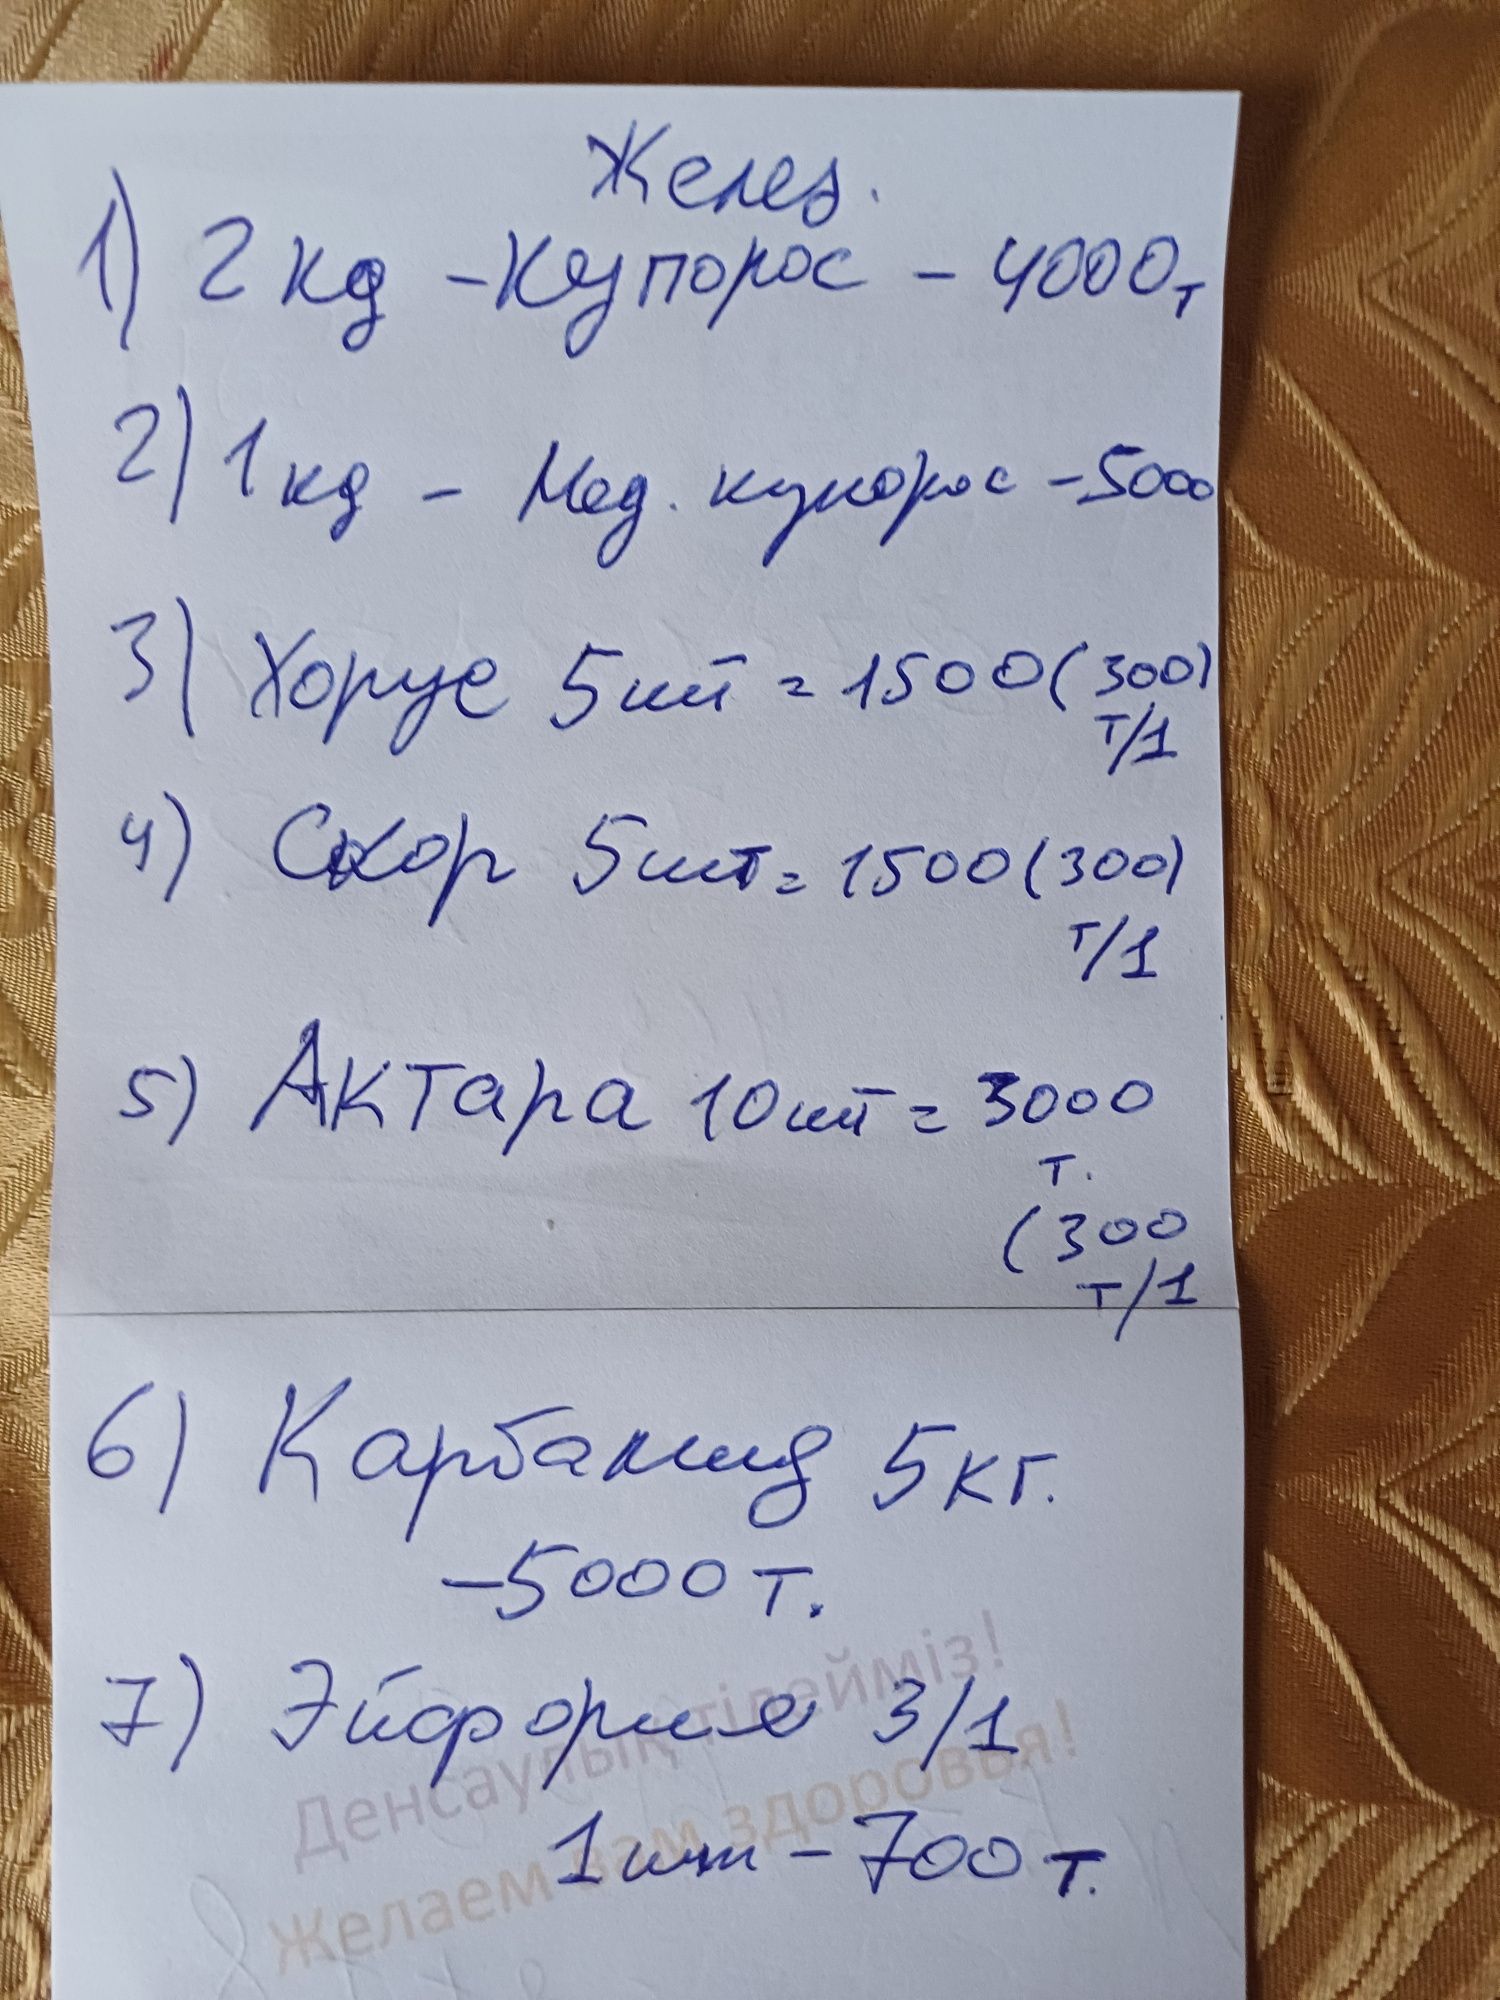 Желез.
1) 2 кд - Купорос - 4000т
2) 1 кд - Мед. купорос - 5000
3) Хорус 5шт = 1500 (300)
т/1
4) Скор 5шт = 1500 (300)
т/1
5) Актара 10шт = 3000
т.
(300
т/1
6) Карбамид 5кг.
-5000 т.
7) Эйфория 3/1
1 шт - 700 т.
Денсаулық тілейміз!
Желаем вам здоровья!